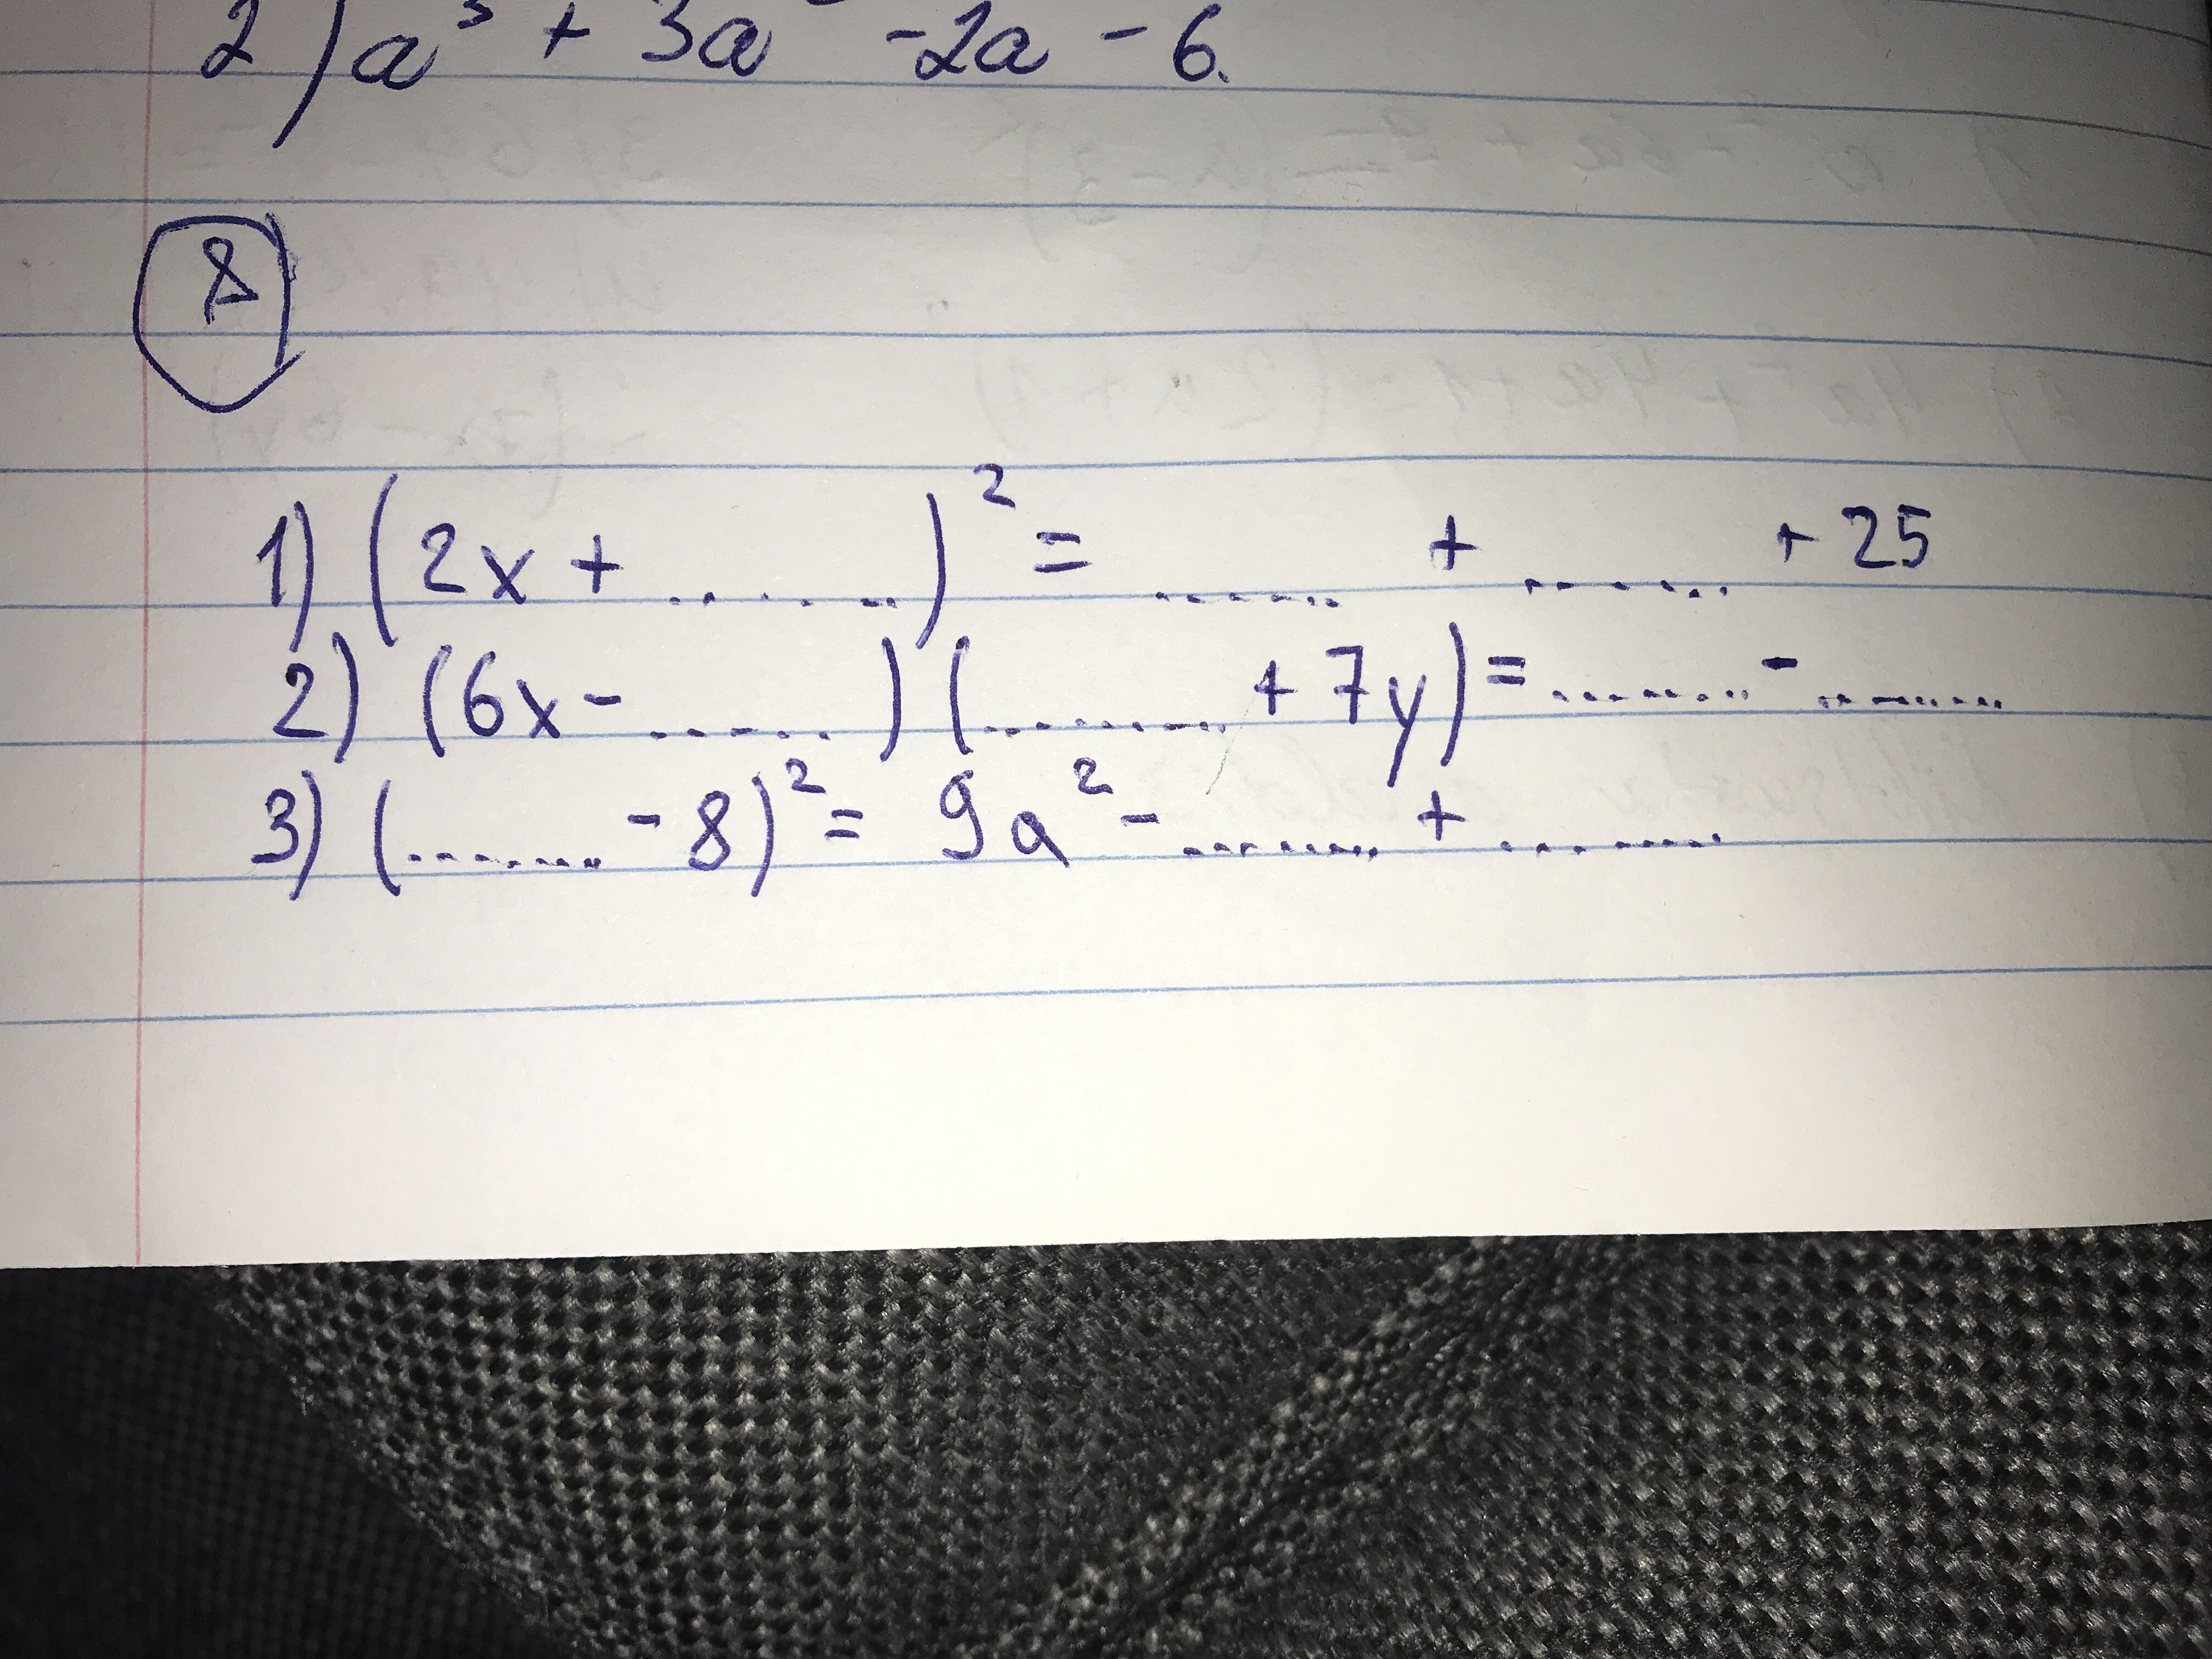 2) a³ + 3a² - 2a - 6.
8
1) (2x + ........)² = ........ + ........ + 25
2) (6x - ........) (........ + 7y) = ........ - ........
3) (........ - 8)² = 9a² - ........ + ........